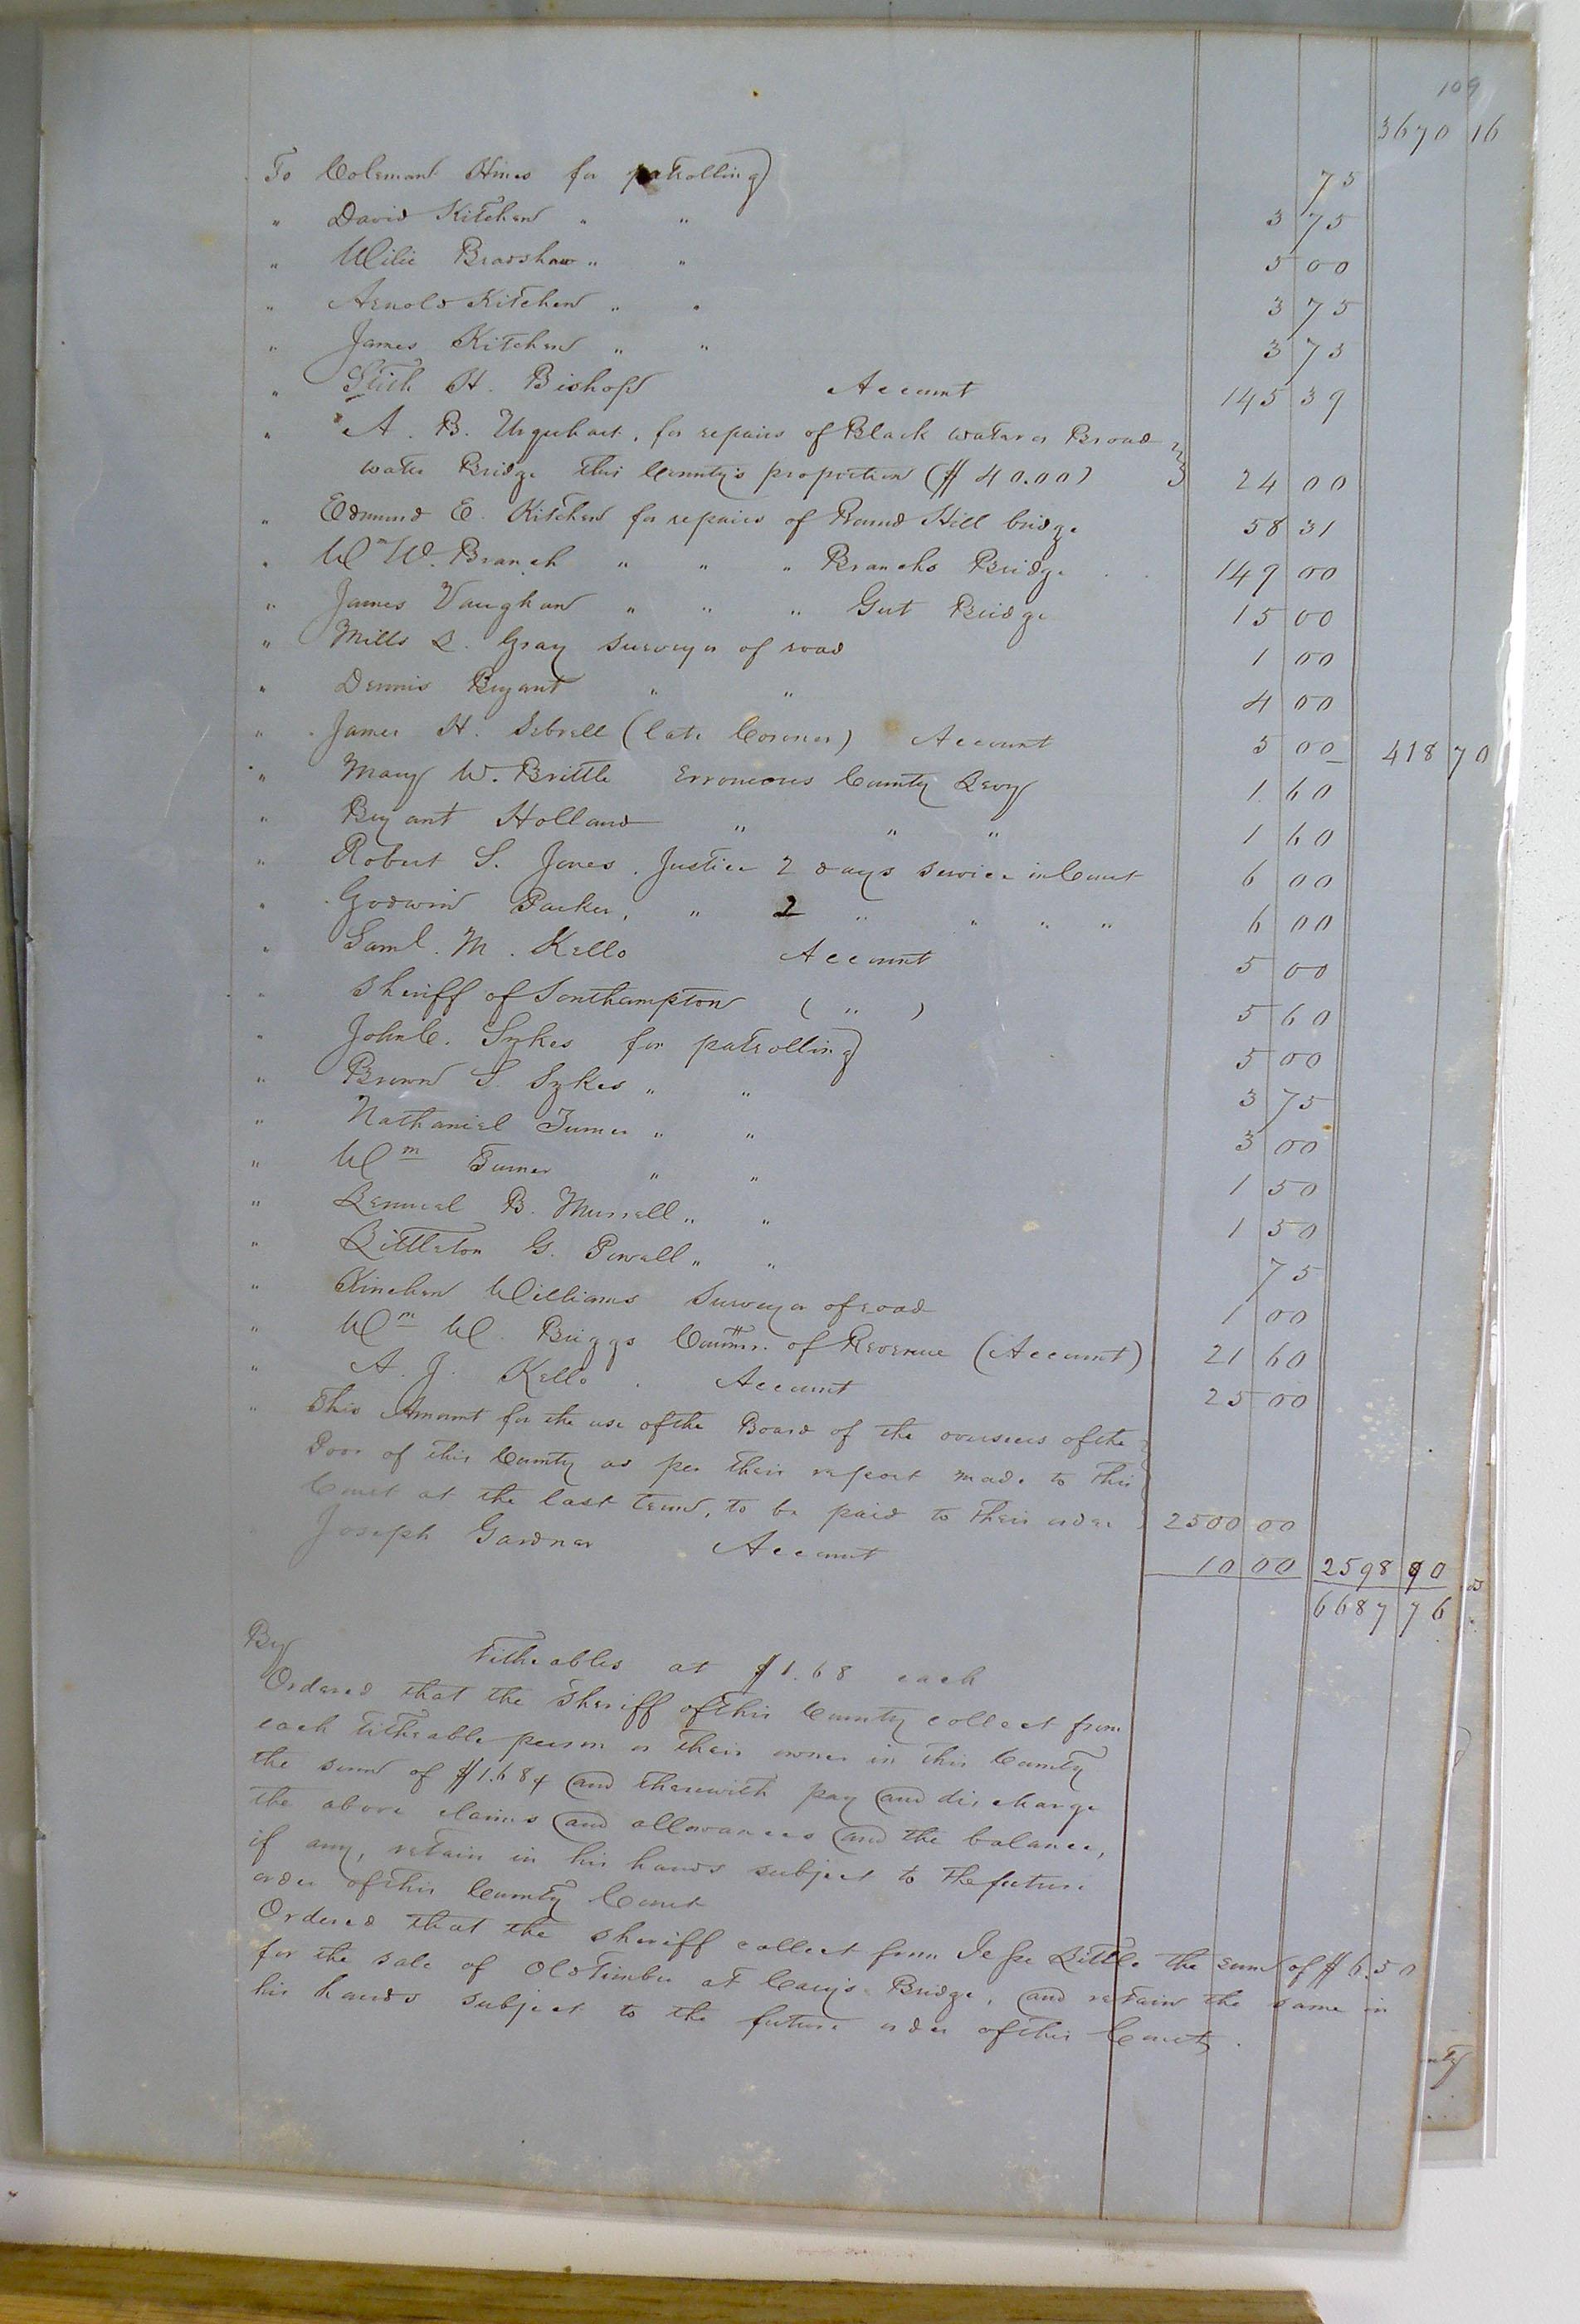 109
3670 16
To Coleman Hines for patrolling 75
" David Kitchen " " 3 75
" Wilie Bradshaw " " 5 00
" Arnold Kitchen " " 3 75
" James Kitchen " " 3 75
" Stith H. Bishop Account 145 39
" A. B. Urquhart, for repairs of Black water or Broad
water Bridge this County's proportion ($40.00) 24 00
" Edmund E. Kitchen for repairs of Round Hill bridge 58 31
" Wm W. Branch " " " Branchs Bridge 149 00
" James Vaughan " " " Gut Bridge 15 00
" Mills L. Gray surveyor of road 1 00
" Dennis Bryant " " 4 00
" James H. Sebrell (late Coroner) Account 5 00 418 70
" Mary W. Brittle Erroneous County Levy 1 60
" Bryant Holland " " " 1 60
" Robert S. Jones, Justice 2 days service in Court 6 00
" Godwin Parker, " 2 " " " " 6 00
" Saml. M. Kello Account 5 00
" Sheriff of Southampton ( " ) 5 60
" John C. Sykes for patrolling 5 00
" Brown S. Sykes " " 3 75
" Nathaniel Turner " " 3 00
" Wm Turner " " 1 50
" Lemuel B. Murrell " " 1 50
" Littleton G. Powell " " 75
" Kinchen Williams Surveyor of road 1 00
" Wm W. Briggs Commr. of Revenue (Account) 21 60
" A. J. Kello. Account 25 00
" This Amount for the use of the Board of the overseers of the
Poor of this County as per their report made to this
Court at the last term, to be paid to their order 2500 00
" Joseph Gardner Account 10 00 2598 90
6687 76
By Titheables at $1.68 each
Ordered that the Sheriff of this County collect from
each titheable person or their owner in this County
the sum of $1.68 & and therewith pay and discharge
the above claims and allowances and the balance,
if any, retain in his hands subject to the future
order of this County Court
Ordered that the sheriff collect from Jesse Little the sum of $6.50
for the sale of Old Timber at Cary's Bridge, and retain the same in
his hands subject to the future order of this Court.